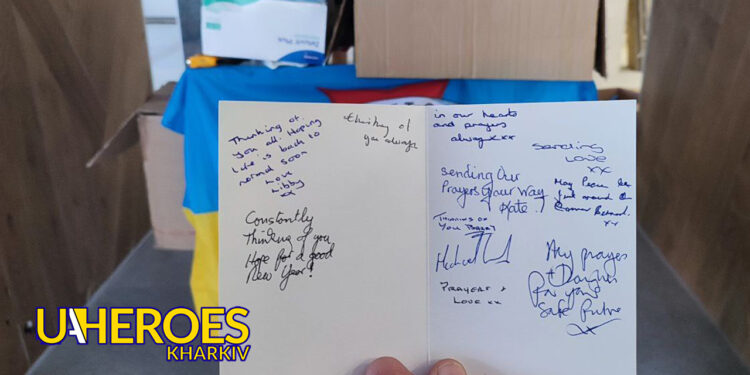 Thinking of
you all. Hoping
Life is back to
normal soon
Love
Libby
xx
thinking of
you always
Constantly
Thinking of you
Hope for a good
New Year!
in our hearts
and prayers
always xxx
Sending
Love
xx
Sending Our
Prayers your Way
Kate
May Peace be
just around the
Corner Bernard.
xx
Thinking of
you
Michael
Prayers +
Love xx
My prayers
+ Thoughts
for your
Safe Future
xx
UAHEROES
KHARKIV